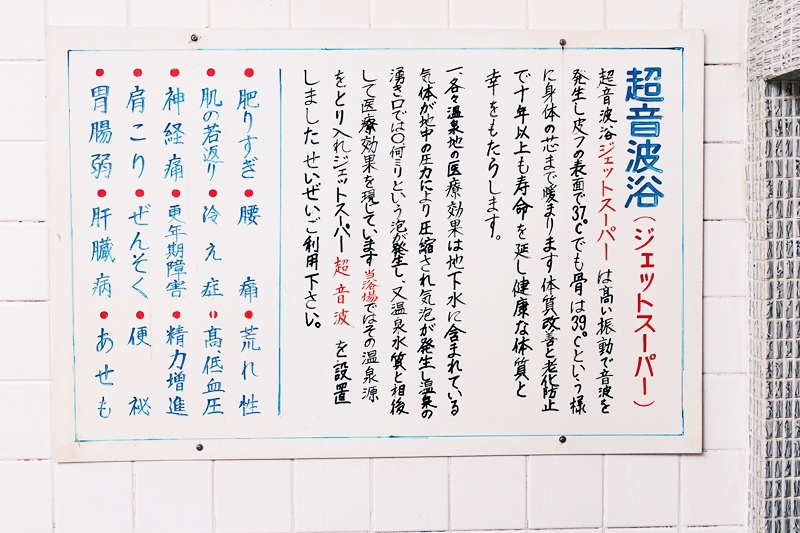 超音波浴(ジェットスーパー)
超音波浴ジェットスーパーは高い振動で音波を
発生し皮フの表面で37℃でも骨は39℃という様
に身体の芯まで暖まります体質改善と老化防止
で十年以上も寿命を延し健康な体質と
幸をもたらします。
一、各々温泉地の医療効果は地下水に含まれている
気体が地中の圧力により圧縮され気泡が発生し温泉の
湧き口では〇何ミリという泡が発生し、又温泉水質と相俊
して医療効果を現しています当浴場ではその温泉源
をとり入れジェットスーパー超音波を設置
しましたせいぜいご利用下さい。
●肥りすぎ●腰痛●荒れ性
●肌の若返り●冷え症●高、低血圧
●神経痛●更年期障害●精力増進
●肩こり●ぜんそく●便秘
●胃腸弱●肝臓病●あせも